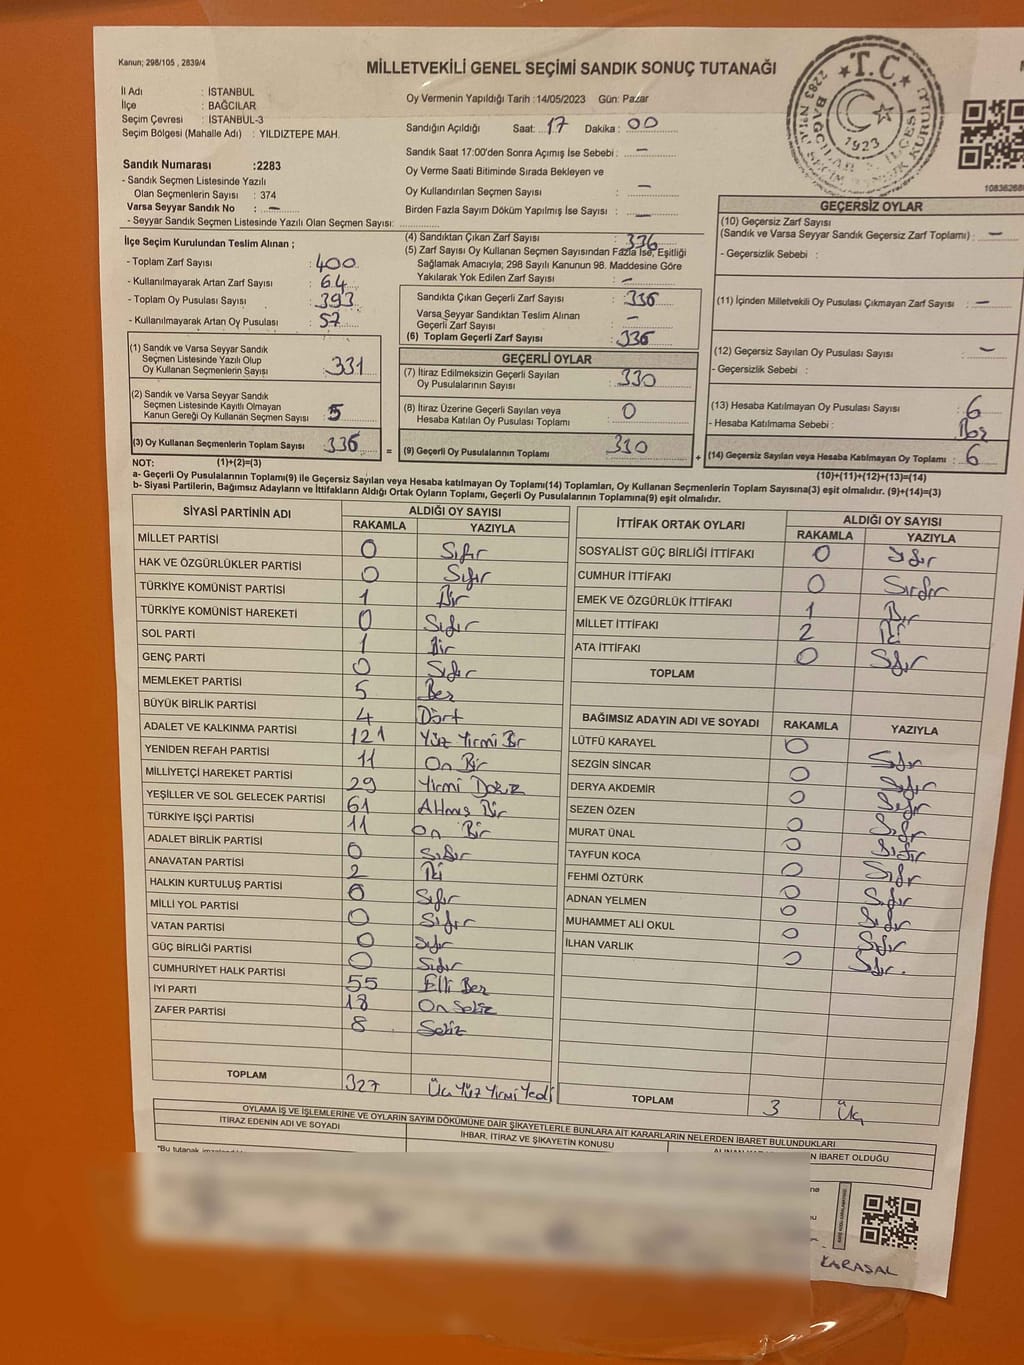 Kanun; 298/105 , 2839/4
MİLLETVEKİLİ GENEL SEÇİMİ SANDIK SONUÇ TUTANAĞI
İl Adı : İSTANBUL
İlçe : BAĞCILAR
Seçim Çevresi : İSTANBUL-3
Seçim Bölgesi (Mahalle Adı) : YILDIZTEPE MAH.
Oy Vermenin Yapıldığı Tarih :14/05/2023 Gün: Pazar
Sandığın Açıldığı Saat: 17 Dakika: 00
Sandık Saat 17:00'den Sonra Açımış İse Sebebi : –
Oy Verme Saati Bitiminde Sırada Bekleyen ve
Oy Kullandırılan Seçmen Sayısı : –
Birden Fazla Sayım Döküm Yapılmış İse Sayısı : –
T.C.
1923
10836268
Sandık Numarası :2283
- Sandık Seçmen Listesinde Yazılı
Olan Seçmenlerin Sayısı : 374
Varsa Seyyar Sandık No : –
- Seyyar Sandık Seçmen Listesinde Yazılı Olan Seçmen Sayısı:
İlçe Seçim Kurulundan Teslim Alınan ;
- Toplam Zarf Sayısı : 400
- Kullanılmayarak Artan Zarf Sayısı : 64
- Toplam Oy Pusulası Sayısı : 393
- Kullanılmayarak Artan Oy Pusulası : 57
(1) Sandık ve Varsa Seyyar Sandık
Seçmen Listesinde Yazılı Olup
Oy Kullanan Seçmenlerin Sayısı : 331
(2) Sandık ve Varsa Seyyar Sandık
Seçmen Listesinde Kayıtlı Olmayan
Kanun Gereği Oy Kullanan Seçmen Sayısı : 5
(3) Oy Kullanan Seçmenlerin Toplam Sayısı : 336 =
(4) Sandıktan Çıkan Zarf Sayısı : 336
(5) Zarf Sayısı Oy Kullanan Seçmen Sayısından Fazla İse, Eşitliği
Sağlamak Amacıyla; 298 Sayılı Kanunun 98. Maddesine Göre
Yakılarak Yok Edilen Zarf Sayısı : –
Sandıkta Çıkan Geçerli Zarf Sayısı : 336
Varsa Seyyar Sandıktan Teslim Alınan
Geçerli Zarf Sayısı : –
(6) Toplam Geçerli Zarf Sayısı : 336
GEÇERLİ OYLAR
(7) İtiraz Edilmeksizin Geçerli Sayılan
Oy Pusulalarının Sayısı : 330
(8) İtiraz Üzerine Geçerli Sayılan veya
Hesaba Katılan Oy Pusulası Toplamı : 0
(9) Geçerli Oy Pusulalarının Toplamı : 330 +
GEÇERSİZ OYLAR
(10) Geçersiz Zarf Sayısı
(Sandık ve Varsa Seyyar Sandık Geçersiz Zarf Toplamı) : –
- Geçersizlik Sebebi :
(11) İçinden Milletvekili Oy Pusulası Çıkmayan Zarf Sayısı : –
(12) Geçersiz Sayılan Oy Pusulası Sayısı : –
- Geçersizlik Sebebi :
(13) Hesaba Katılmayan Oy Pusulası Sayısı : 6
- Hesaba Katılmama Sebebi : Boş
(14) Geçersiz Sayılan veya Hesaba Katılmayan Oy Toplamı : 6
NOT: (1)+(2)=(3)
(10)+(11)+(12)+(13)=(14)
a- Geçerli Oy Pusulalarının Toplamı(9) ile Geçersiz Sayılan veya Hesaba katılmayan Oy Toplamı(14) Toplamları, Oy Kullanan Seçmenlerin Toplam Sayısına(3) eşit olmalıdır.
b- Siyasi Partilerin, Bağımsız Adayların ve İttifakların Aldığı Ortak Oyların Toplamı, Geçerli Oy Pusulalarının Toplamına(9) eşit olmalıdır. (9)+(14)=(3)
SİYASİ PARTİNİN ADI ALDIĞI OY SAYISI
RAKAMLA YAZIYLA
MİLLET PARTİSİ 0 Sıfır
HAK VE ÖZGÜRLÜKLER PARTİSİ 0 Sıfır
TÜRKİYE KOMÜNİST PARTİSİ 1 Bir
TÜRKİYE KOMÜNİST HAREKETİ 0 Sıfır
SOL PARTİ 1 Bir
GENÇ PARTİ 0 Sıfır
MEMLEKET PARTİSİ 5 Beş
BÜYÜK BİRLİK PARTİSİ 4 Dört
ADALET VE KALKINMA PARTİSİ 121 Yüz Yirmi Bir
YENİDEN REFAH PARTİSİ 11 On Bir
MİLLİYETÇİ HAREKET PARTİSİ 29 Yirmi Dokuz
YEŞİLLER VE SOL GELECEK PARTİSİ 61 Altmış Bir
TÜRKİYE İŞÇİ PARTİSİ 11 On Bir
ADALET BİRLİK PARTİSİ 0 Sıfır
ANAVATAN PARTİSİ 2 İki
HALKIN KURTULUŞ PARTİSİ 0 Sıfır
MİLLİ YOL PARTİSİ 0 Sıfır
VATAN PARTİSİ 0 Sıfır
GÜÇ BİRLİĞİ PARTİSİ 0 Sıfır
CUMHURİYET HALK PARTİSİ 55 Elli Beş
İYİ PARTİ 18 On Sekiz
ZAFER PARTİSİ 8 Sekiz
TOPLAM 327 Üç Yüz Yirmi Yedi
İTTİFAK ORTAK OYLARI ALDIĞI OY SAYISI
RAKAMLA YAZIYLA
SOSYALİST GÜÇ BİRLİĞİ İTTİFAKI 0 Sıfır
CUMHUR İTTİFAKI 0 Sıfır
EMEK VE ÖZGÜRLÜK İTTİFAKI 1 Bir
MİLLET İTTİFAKI 2 İki
ATA İTTİFAKI 0 Sıfır
TOPLAM
BAĞIMSIZ ADAYIN ADI VE SOYADI RAKAMLA YAZIYLA
LÜTFÜ KARAYEL 0 Sıfır
SEZGİN SİNCAR 0 Sıfır
DERYA AKDEMİR 0 Sıfır
SEZEN ÖZEN 0 Sıfır
MURAT ÜNAL 0 Sıfır
TAYFUN KOCA 0 Sıfır
FEHMİ ÖZTÜRK 0 Sıfır
ADNAN YELMEN 0 Sıfır
MUHAMMET ALİ OKUL 0 Sıfır
İLHAN VARLIK 0 Sıfır.
TOPLAM 3 Üç
OYLAMA İŞ VE İŞLEMLERİNE VE OYLARIN SAYIM DÖKÜMÜNE DAİR ŞİKAYETLERLE BUNLARA AİT KARARLARIN NELERDEN İBARET BULUNDUKLARI
İTİRAZ EDENİN ADI VE SOYADI
İHBAR, İTİRAZ VE ŞİKAYETİN KONUSU
N İBARET OLDUĞU
*Bu tutanak
KARASAL